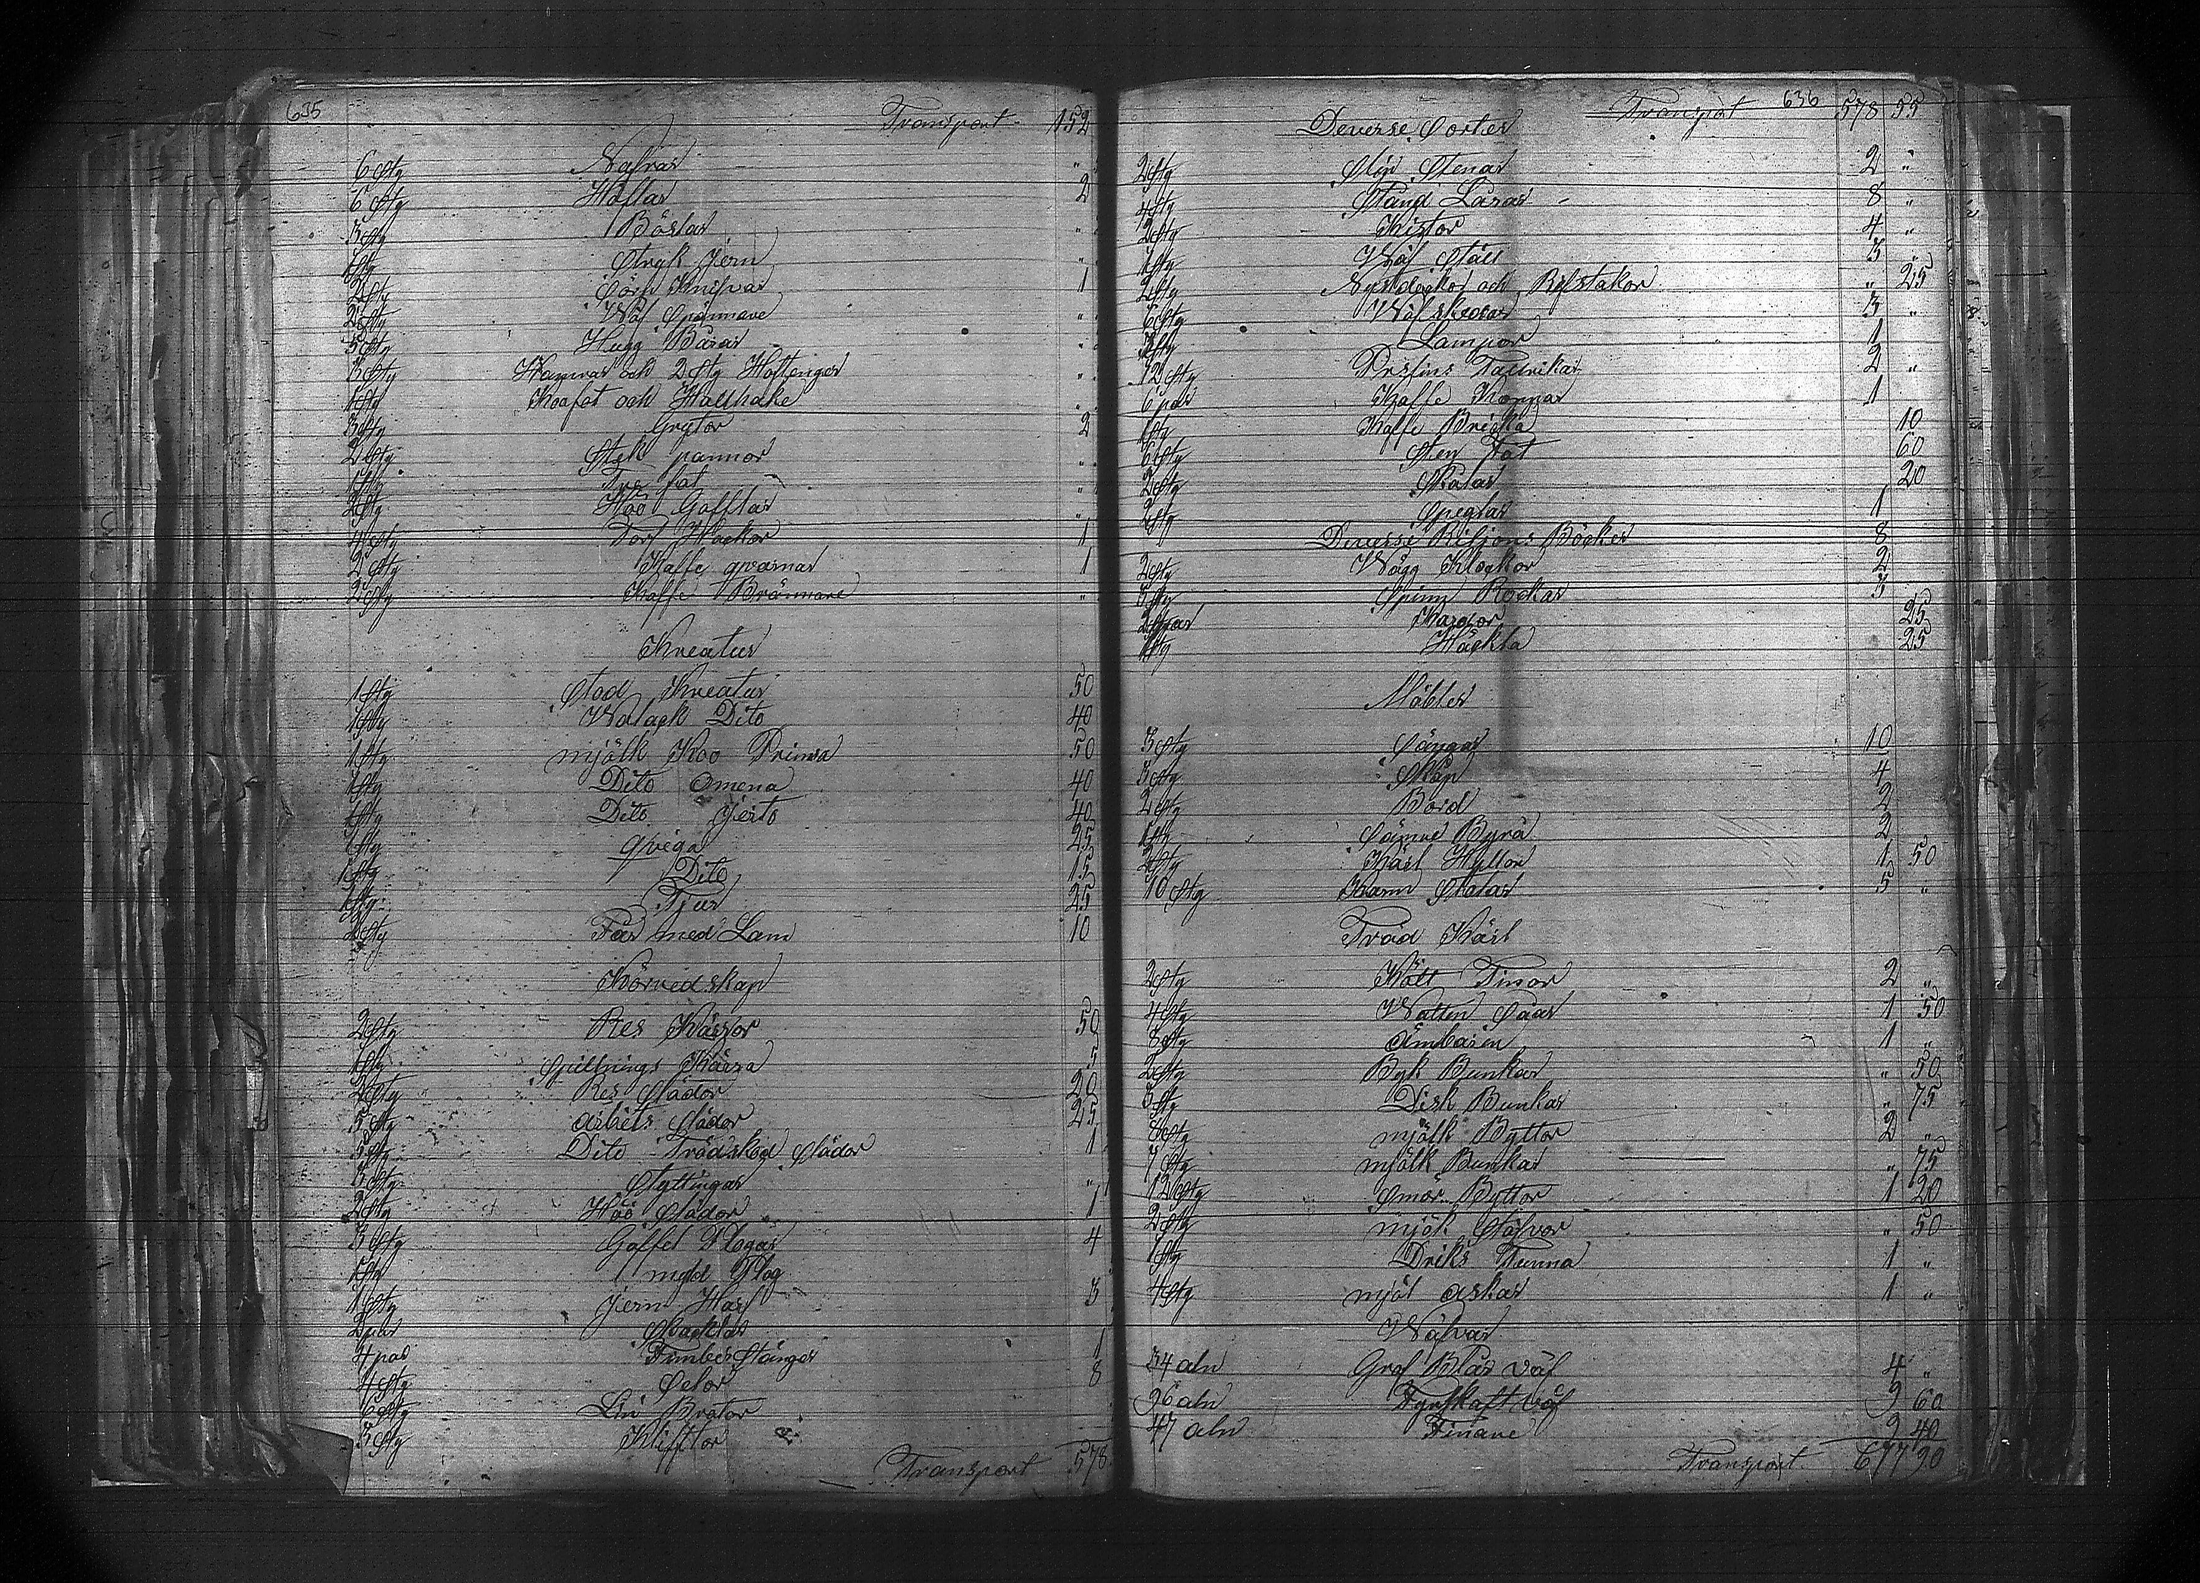 635 Transport 152
6 Stg Nafvar "
6 Stg Höflar 2
3 Stg Börlar "
1 Stg Stryk Jern "
2 Stg Knifvar 1
2 Stg Väf Spännare "
5 Stg Hugg Bärar "
3 Stg Hamrar och 2 Stg Hoftänger "
1 Stg Koofot och Hallhake
3 Stg Grytor 2
2 Stg Stek pannor "
1 Stg Trä fat "
2 Stg Höö Gafflar "
4 Stg Torf Hackor 1
2 Stg Kaffe qvarnar 1
2 Stg Kaffe Brännare "
Kreatur
1 Stg Stod Kreatur 50
1 Stg Walack Dito 40
1 Stg mjölk Koo Prinsa 50
1 Stg Dito Omena 40
1 Stg Dito Jerto 40
1 Stg qviga 25
1 Stg Dito 15
1 Stg Tjur 25
2 Stg Får med Lam 10
Körredskap
2 Stg Res Kärror 50
1 Stg Spillnings Kärra 5
2 Stg Res Slädor 20
5 Stg arbets Slädor 25
5 Stg Dito Trädskod Slädor 1
3 Stg Styttingar "
2 Stg Höö Slädor 1
3 Stg Gaffel Plogar 4
1 Stg mold Plog
1 Stg Jern Harf 3
2 par Skacklar
4 par Timber Stänger 1
4 Stg Selar 8
6 Stg Lin Brotor
3 Stg Klifftor
Transport 578
636 Transport 578 55
Deverse Sorter
2 Stg Slip Stenar 2 "
4 Stg Stång Lasar 8 "
2 Stg Kistor 4 "
1 Stg Väf Ställ 3 "
2 Stg Nystdockor och Refstakor " 25
6 Stg Väf skedar 3 "
2 Stg Lampor 1
12 Stg Porslins Tallrikar 2 "
6 par Kaffe Koppar 1
1 Stg Kaffe Bricka 10
6 Stg Sten Fat 60
2 Stg Skålar 20
2 Stg Speglar 1
Diverse Riljons Böcker 8
2 Stg Vägg Klockor 2
3 Stg Spinn Rockar 3
2 par Kardor 25
1 Stg Häckla 25
Möbler
3 Stg Sängar 10
3 Stg Skåp 4
2 Stg Bord 2
1 Stg Sämre Byrå 2
2 Stg Kärl Hyllor 1 50
10 Stg Karm Stolar 5 "
Träd Kärl
2 Stg Kält Tinor 2 "
4 Stg Watten Såar 1 50
8 Stg Ämbaren 1 "
2 Stg Byk Bunkar " 50
3 Stg Disk Bunkar " 75
8 Stg mjölk Byttor 2 "
7 Stg mjölk Bunkar " 75
12 Stg Smör Byttor 1 20
2 Stg mjök Stäfvor " 50
1 Stg Driks Tunna 1 "
4 Stg mjöl askar 1 "
Väfvar
34 aln Grof Blår väf 4 "
96 aln Fyrskaft väf 9 60
47 aln Finare 9 40
Transport 677 90